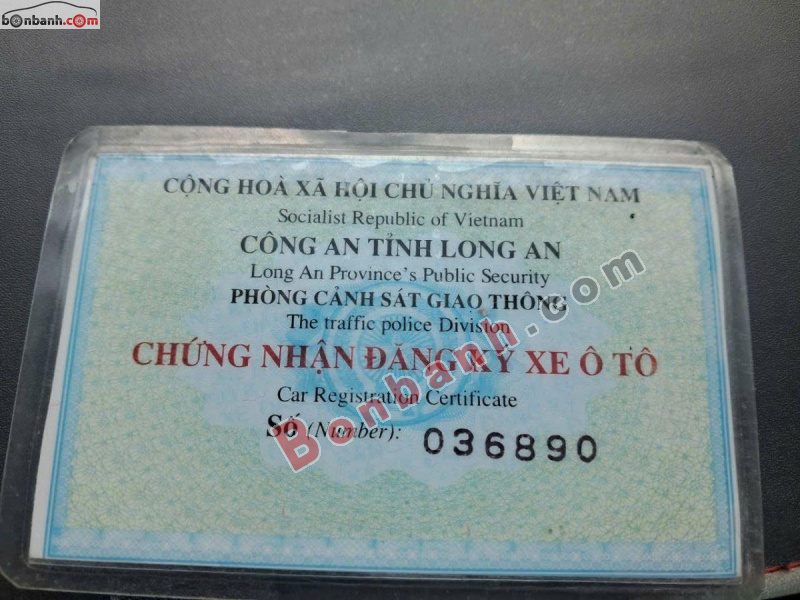 bonbanh.com
CỘNG HOÀ XÃ HỘI CHỦ NGHĨA VIỆT NAM
Socialist Republic of Vietnam
CÔNG AN TỈNH LONG AN
Long An Province's Public Security
PHÒNG CẢNH SÁT GIAO THÔNG
The traffic police Division
CHỨNG NHẬN ĐĂNG KÝ XE Ô TÔ
Car Registration Certificate
Số (Number): 036890
Bonbanh.com